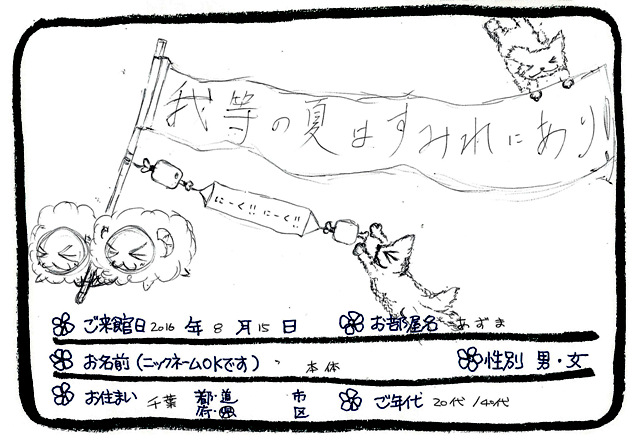 我等の夏はすみれにあり
にーく!! にーく!!
ご来館日 2016 年 8 月 15 日 お部屋名 あずま
お名前(ニックネームOKです) 本体 性別 男・女
お住まい 千葉 都・道 府・県 市 区 ご年代 20代/40代